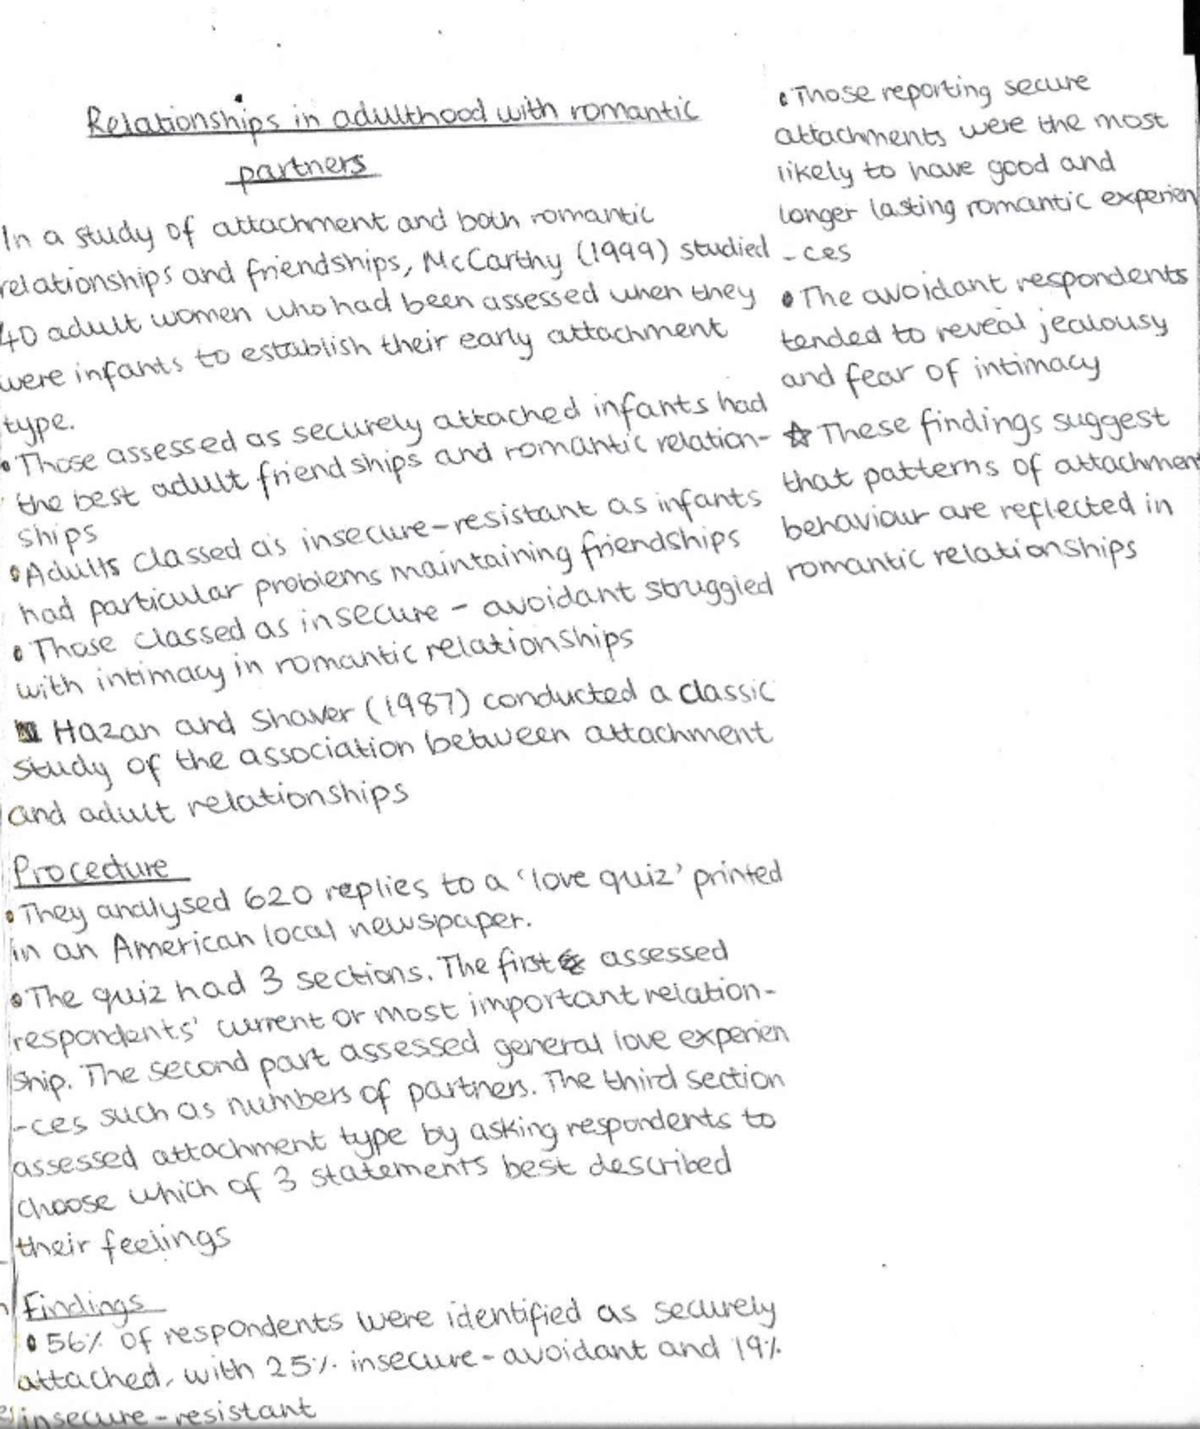 Relationships in adulthood with romantic
partners
In a study of attachment and both romantic
relationships and friendships, McCarthy (1999) studied
40 adult women who had been assessed when they
were infants to establish their early attachment
type.
• Those assessed as securely attached infants had
the best adult friendships and romantic relation-
ships
• Adults classed as insecure-resistant as infants
had particular problems maintaining friendships
• Those classed as insecure - avoidant struggled
with intimacy in romantic relationships
Hazan and Shaver (1987) conducted a classic
study of the association between attachment
and adult relationships
Procedure
• They analysed 620 replies to a 'love quiz' printed
in an American local newspaper.
• The quiz had 3 sections. The first assessed
respondents' current or most important relation-
ship. The second part assessed general love experien
-ces such as numbers of partners. The third section
assessed attachment type by asking respondents to
choose which of 3 statements best described
their feelings
Findings
• 56% of respondents were identified as securely
attached, with 25% insecure-avoidant and 19%
insecure-resistant
• Those reporting secure
attachments were the most
likely to have good and
longer lasting romantic experien
-ces
• The avoidant respondents
tended to reveal jealousy
and fear of intimacy
☆ These findings suggest
that patterns of attachment
behaviour are reflected in
romantic relationships